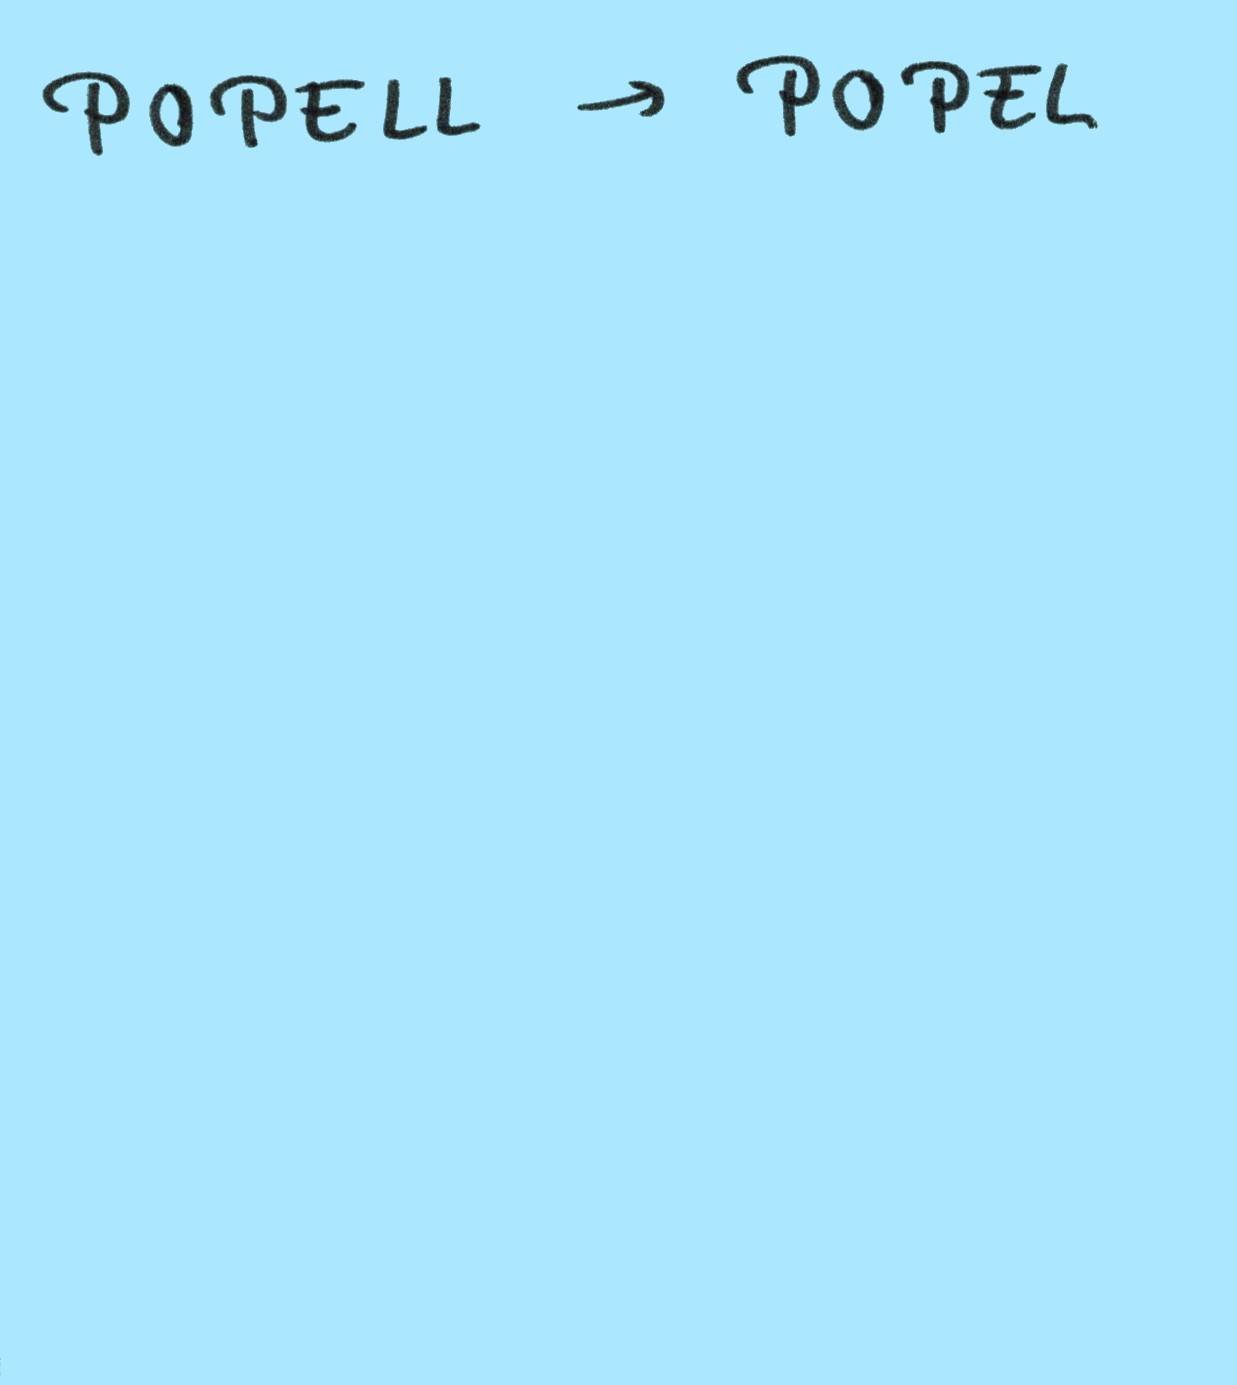 POPELL → POPEL